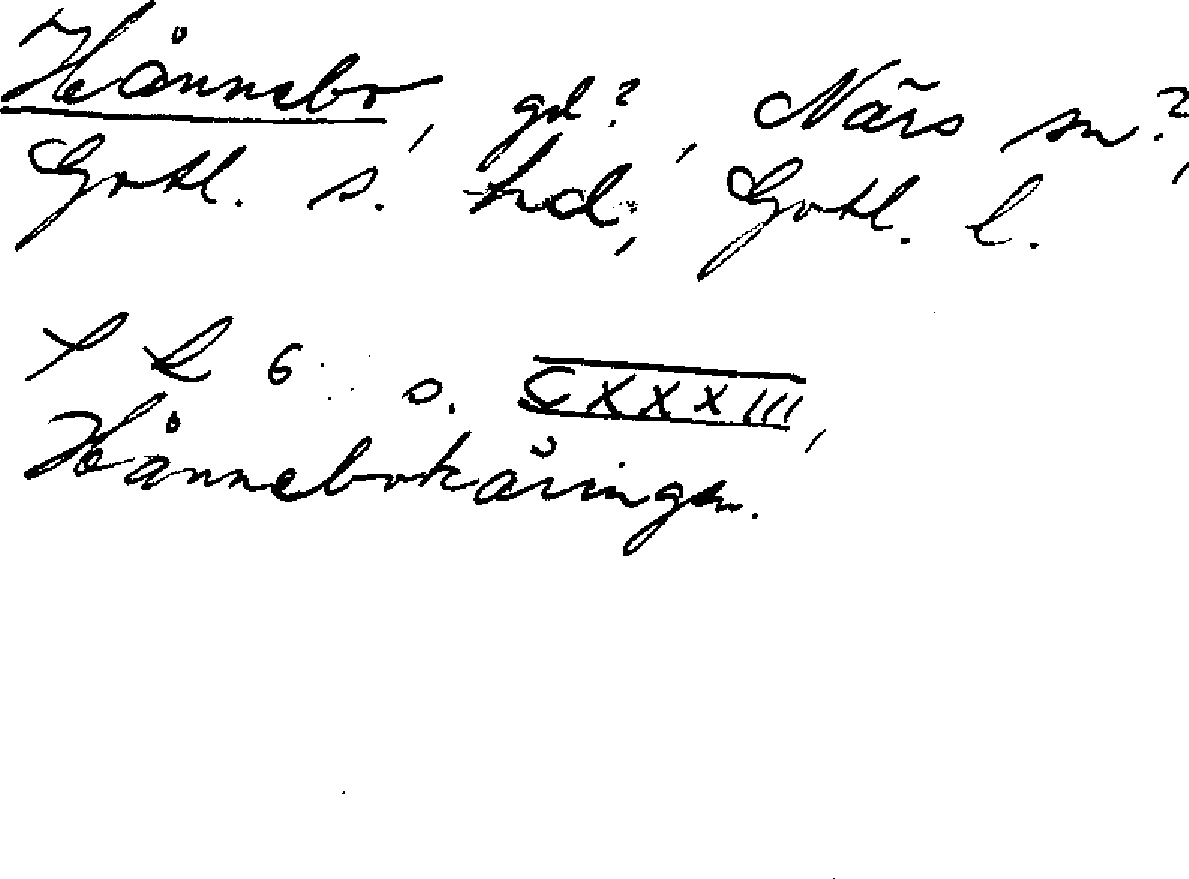 Hånnebo, gd?, När s sn?,
Gotl. s. hd, Gotl. l.
S L 6 s. CXXXIII,
Hånnebokäringen.